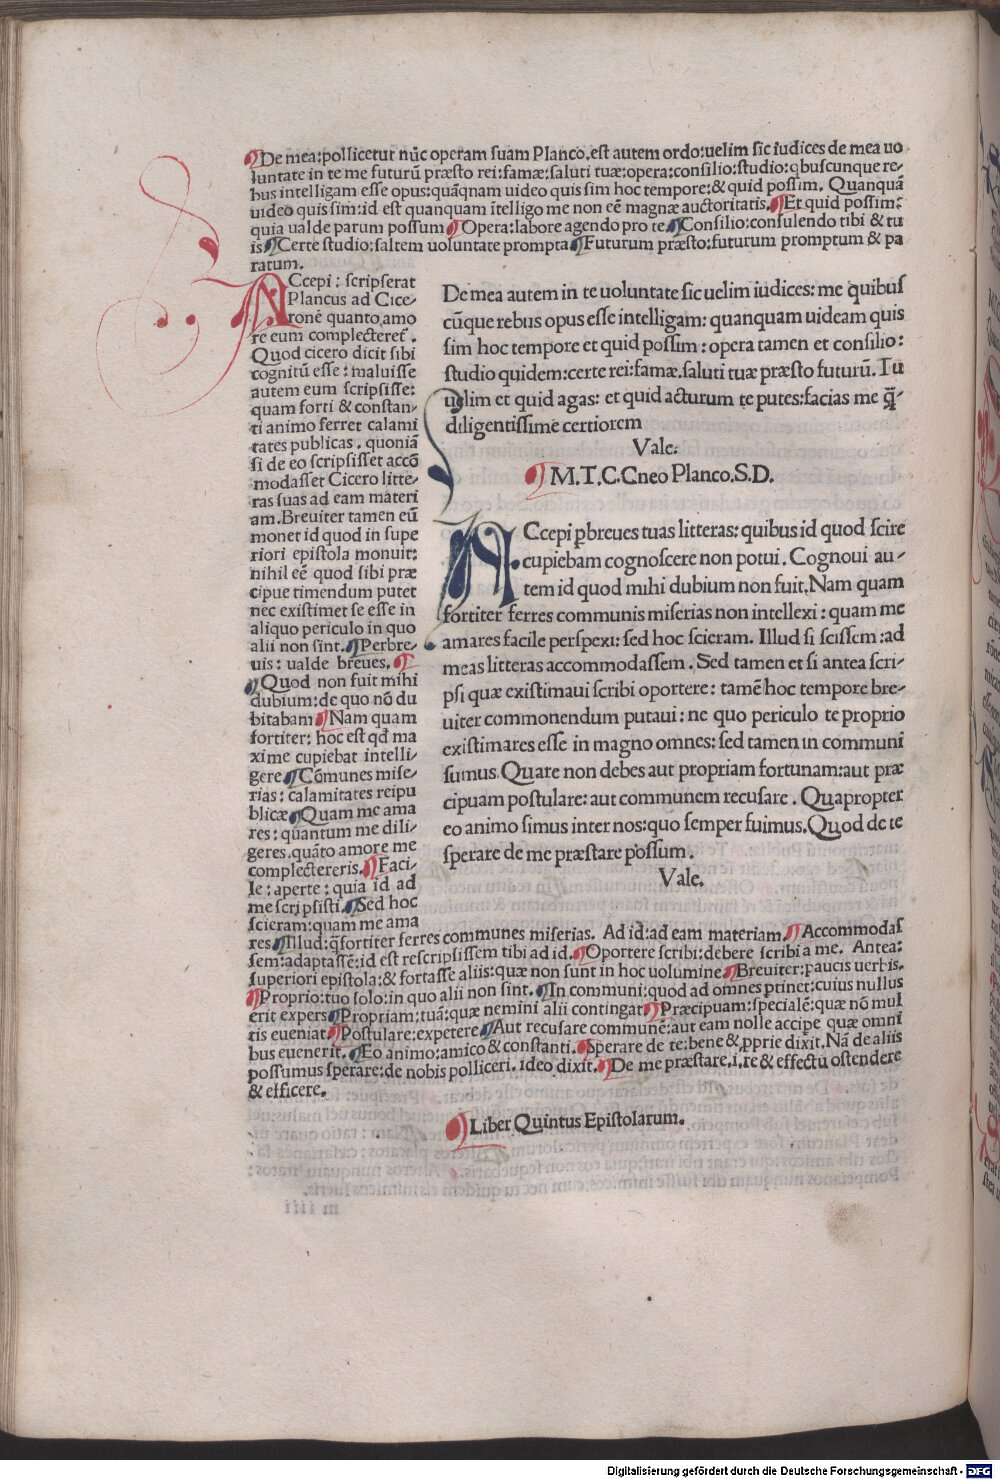 De mea:pollicetur nūc operam suam Planco.est autem ordo:uelim sic iudices de mea uo
luntate in te me futurū præsto rei:famæ:saluti tuæ:opera:consilio:studio:qbuscunque re-
bus intelligam esse opus:quāqnam uideo quis sim hoc tempore:& quid possim. Quanquā
uideo quis sim:id est quanquam ītelligo me non eē magnæ auctoritatis.¶Et quid possim:
quia ualde parum possum¶Opera:labore agendo pro te.¶Consilio:consulendo tibi & tu
is.¶Certe studio:saltem uoluntate prompta¶Futurum præsto:futurum promptum & pa
ratum.
ACcepi: scripserat
Plancus ad Cice-
ronē quanto amo
re eum complecteret̄.
Quod cicero dicit sibi
cognitū esse: maluisse
autem eum scripsisse:
quam forti & constan-
ti animo ferret calami
tates publicas. quoniā
si de eo scripsisset accō
modasset Cicero litte-
ras suas ad eam materi
am.Breuiter tamen eū
monet id quod in supe
riori epistola monuit:
nihil eē quod sibi præ
cipue timendum putet
nec existimet se esse in
aliquo periculo in quo
alii non sint.¶Perbre-
uis: ualde breues.¶
¶Quod non fuit mihi
dubium:de quo nō du
bitabam¶Nam quam
fortiter: hoc est qd̄ ma
xime cupiebat intelli-
gere¶Cōmunes mise-
rias: calamitates reipu
blicæ¶Quam me ama
res: quantum me dili-
geres.quāto amore me
complectereris.¶Faci-
le: aperte: quia id ad
me scripsisti.¶Sed hoc
scieram:quam me ama
De mea autem in te uoluntate sic uelim iudices: me quibus
cūque rebus opus esse intelligam: quanquam uideam quis
sim hoc tempore et quid possim: opera tamen et consilio:
studio quidem:certe rei:famæ.saluti tuæ præsto futurū.Tu
uelim et quid agas: et quid acturum te putes:facias me q̄-
diligentissime certiorem
Vale.
¶M.T.C.Cneo Planco.S.D.
ACcepi pbreues tuas litteras: quibus id quod scire
cupiebam cognoscere non potui. Cognoui au-
tem id quod mihi dubium non fuit.Nam quam
fortiter ferres communis miserias non intellexi: quam me
amares facile perspexi: sed hoc scieram. Illud si scissem:ad
meas litteras accommodassem. Sed tamen et si antea scri-
psi quæ existimaui scribi oportere: tamē hoc tempore bre-
uiter commonendum putaui: ne quo periculo te proprio
existimares esse in magno omnes: sed tamen in communi
sumus Quare non debes aut propriam fortunam:aut præ
cipuam postulare: aut communem recusare. Quapropter
eo animo simus inter nos:quo semper fuimus.Quod de te
sperare de me præstare possum.
Vale.
res¶Illud:q̄fortiter ferres communes miserias. Ad id:ad eam materiam.¶Accommodas
sem:adaptassē:id est rescripsissem tibi ad id.¶Oportere scribi:debere scribi a me. Antea:
superiori epistola:& fortasse aliis:quæ non sunt in hoc uolumine¶Breuiter:paucis uerbis.
¶Proprio:tuo solo:in quo alii non sint.¶In communi:quod ad omnes ptinet:cuius nullus
erit expers¶Propriam:tuā:quæ nemini alii contingat¶Præcipuam:specialē:quæ nō mul
tis eueniat¶Postulare:expetere¶Aut recusare communē:aut eam nolle accipe quæ omni
bus euenerit.¶Eo animo:amico & constanti.¶Sperare de te:bene & pprie dixit.Nā de aliis
possumus sperare:de nobis polliceri. ideo dixit.¶De me præstare.i.re & effectu ostendere
& efficere.
¶Liber Quintus Epistolarum.
Digitalisierung gefördert durch die Deutsche Forschungsgemeinschaft - DFG